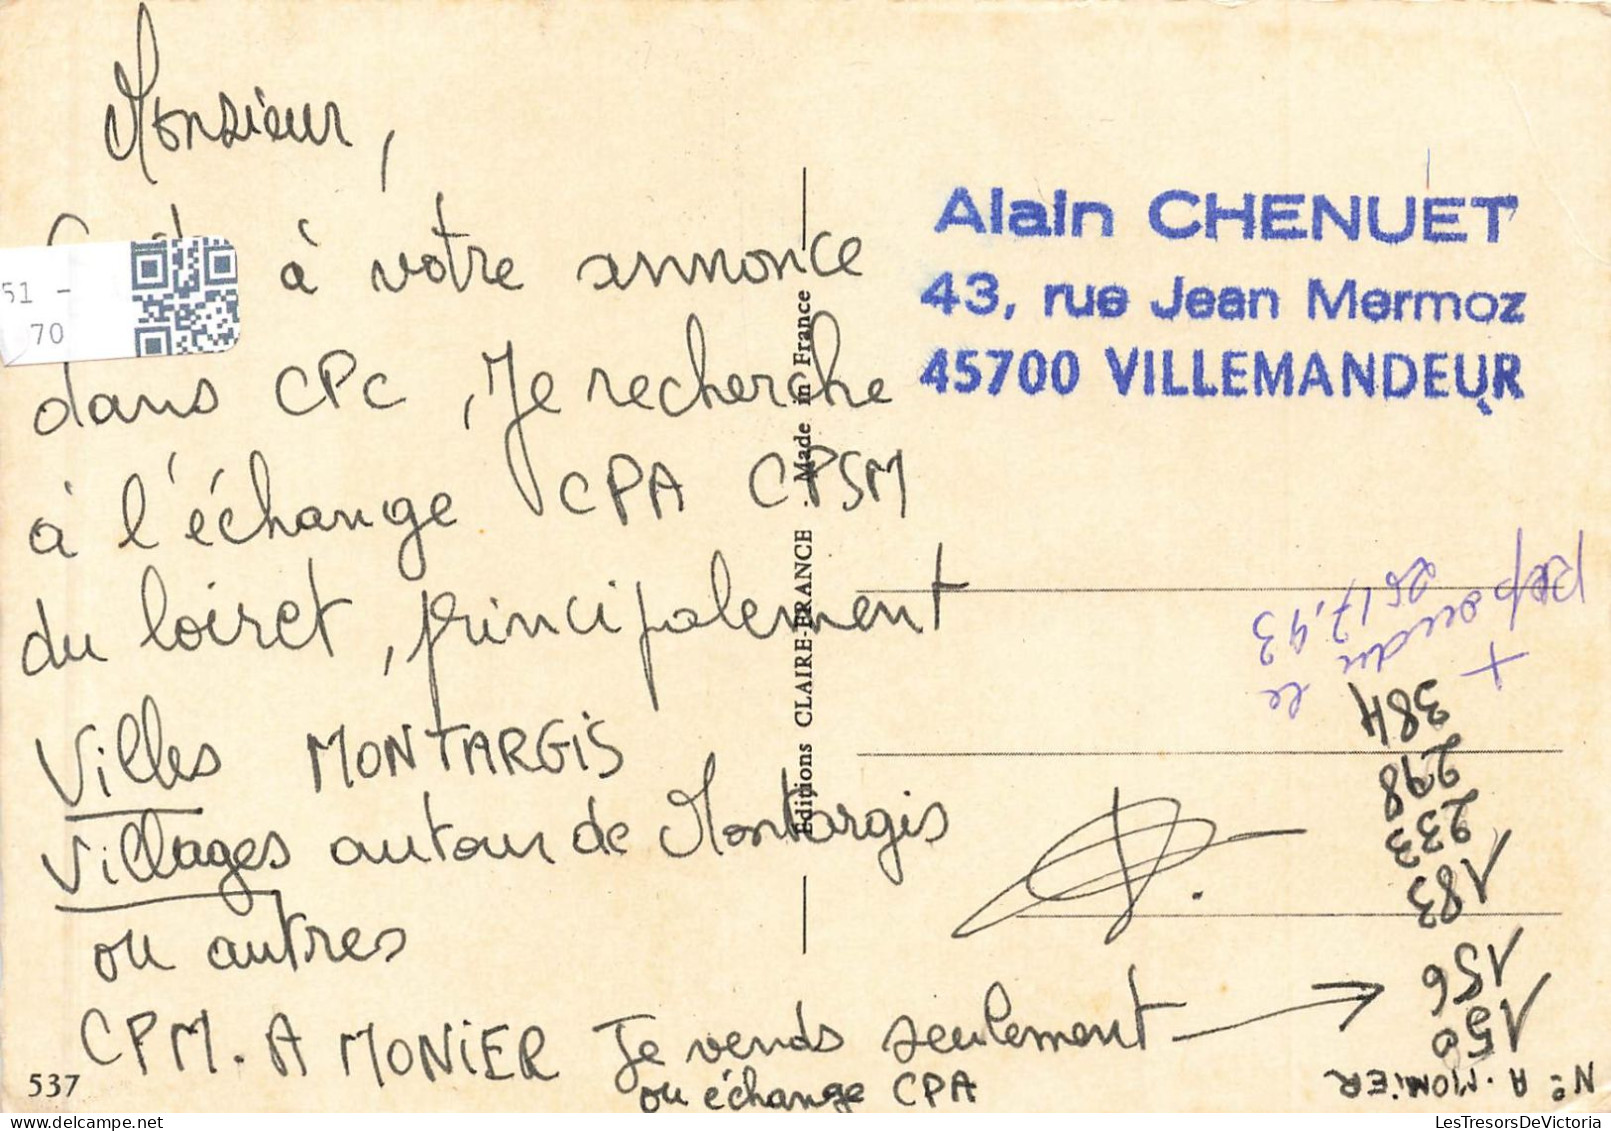 Monsieur,
à votre annonce
dans CPC, Je recherche
à l'échange CPA CPSM
du loiret, principalement
Villes MONTARGIS
Villages autour de Montargis
ou autres
CPM. A MONIER Je vends seulement
ou échange CPA
537
51 -
70
Editions CLAIRE-FRANCE - Made in France
Alain CHENUET
43, rue Jean Mermoz
45700 VILLEMANDEUR
+ le
25.7.93
N° A. MONIER
150
156
183
233
298
384
LesTresorsDeVictoria